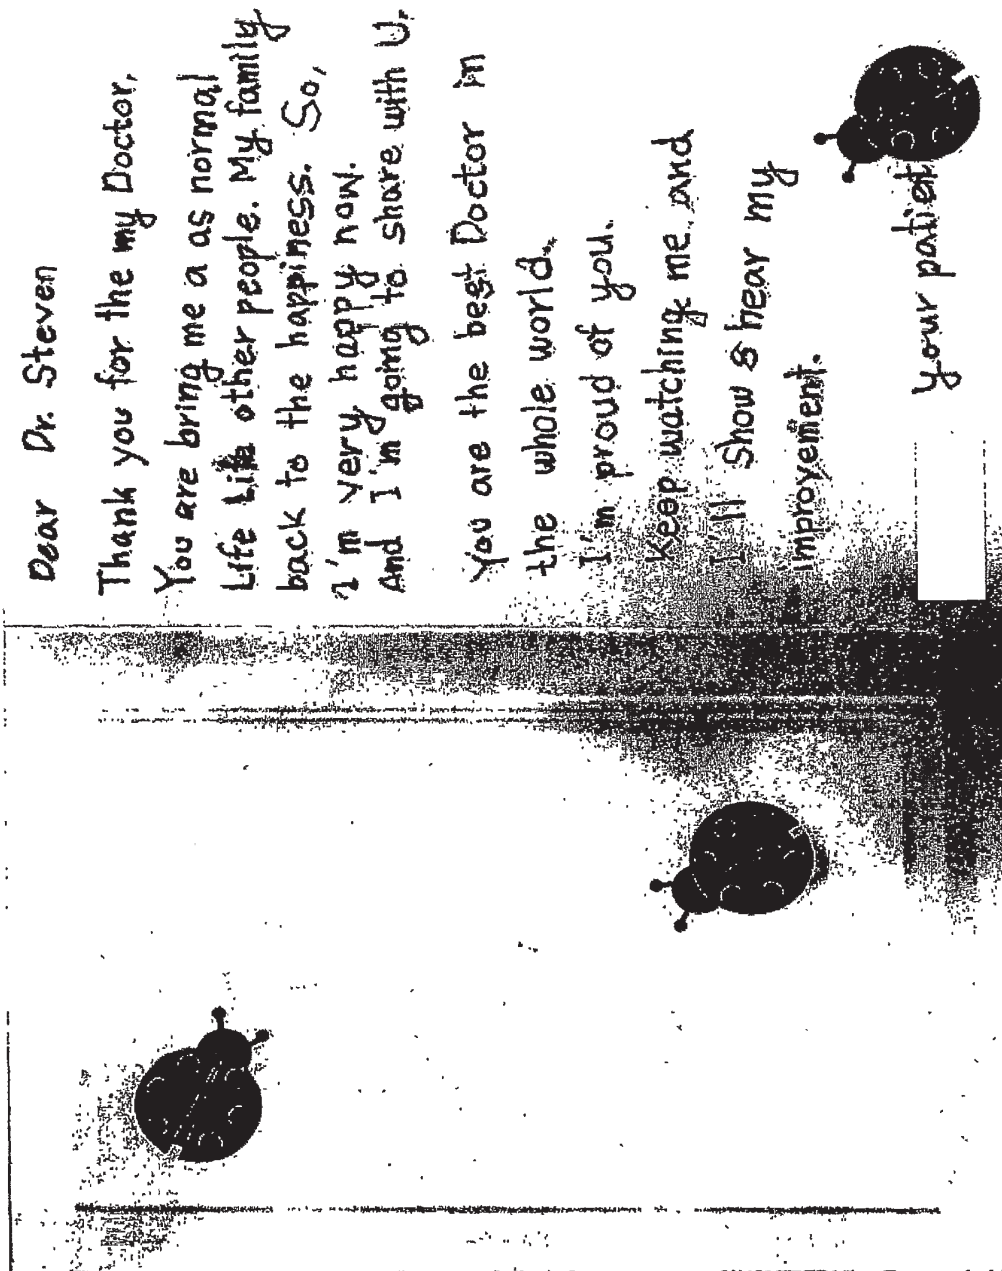 Dear Dr. Steven
Thank you for the my Doctor.
You are bring me a as normal
Life Life other people. My family
back to the happiness. So,
I'm very happy now.
And I'm going to share with U.
You are the best Doctor in
the whole world.
I'm proud of you.
Keep watching me and
I'll show & hear my
improvement.
your patient